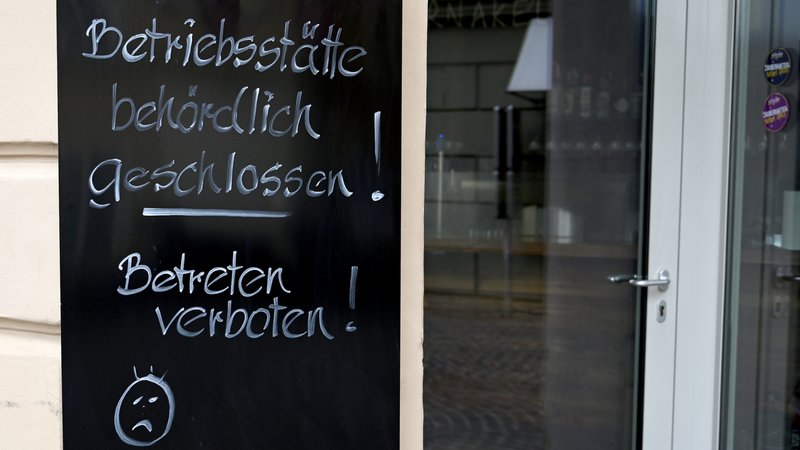 Betriebsstätte
behördlich
geschlossen!
Betreten
verboten!